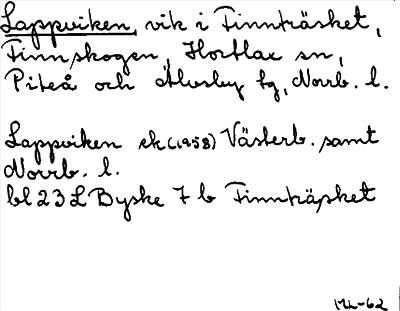 Lappviken, vik i Finnträsket,
Finnskogen, Hortlax sn,
Piteå och Älvsby tg, Norrb. l.
Lappviken ek (1958) Västerb. samt
Norrb. l.
bl 23 L Byske 7 b Finnträsket
ML-62